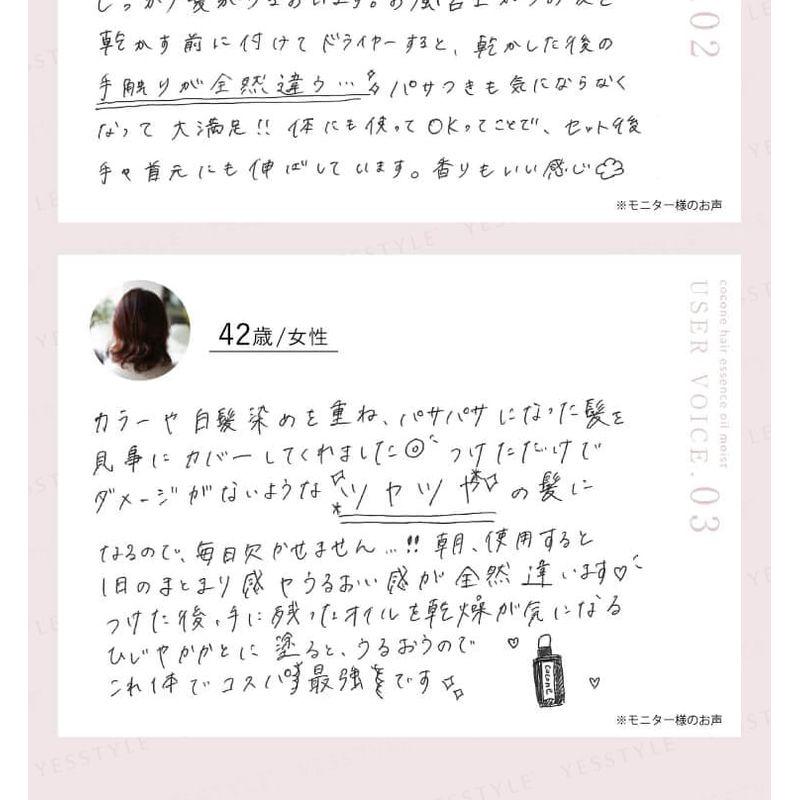 しっかり髪がうるおいます。お風呂上がりの
乾かす前に付けてドライヤーすると、乾かした後の
手触りが全然違う…パサつきも気にならなく
なって大満足!!体にも使ってOKってことで、セット後
手や首元にも伸ばしています。香りもいい感じ
※モニター様のお声
.02
42歳/女性
cocone hair essence oil moist
USER VOICE.03
カラーや白髪染めを重ね、パサパサになった髪を
見事にカバーしてくれました◎つけただけで
ダメージがないようなツヤツヤの髪に
なるので、毎日欠かせません…!!朝、使用すると
1日のまとまり感やうるおい感が全然違います♡
つけた後、手に残ったオイルを乾燥が気になる
ひじやかかとに塗ると、うるおうので
これ1本でコスパ最強です
cocone
※モニター様のお声
YESSTYLE
YESSTYLE
YESSTYLE